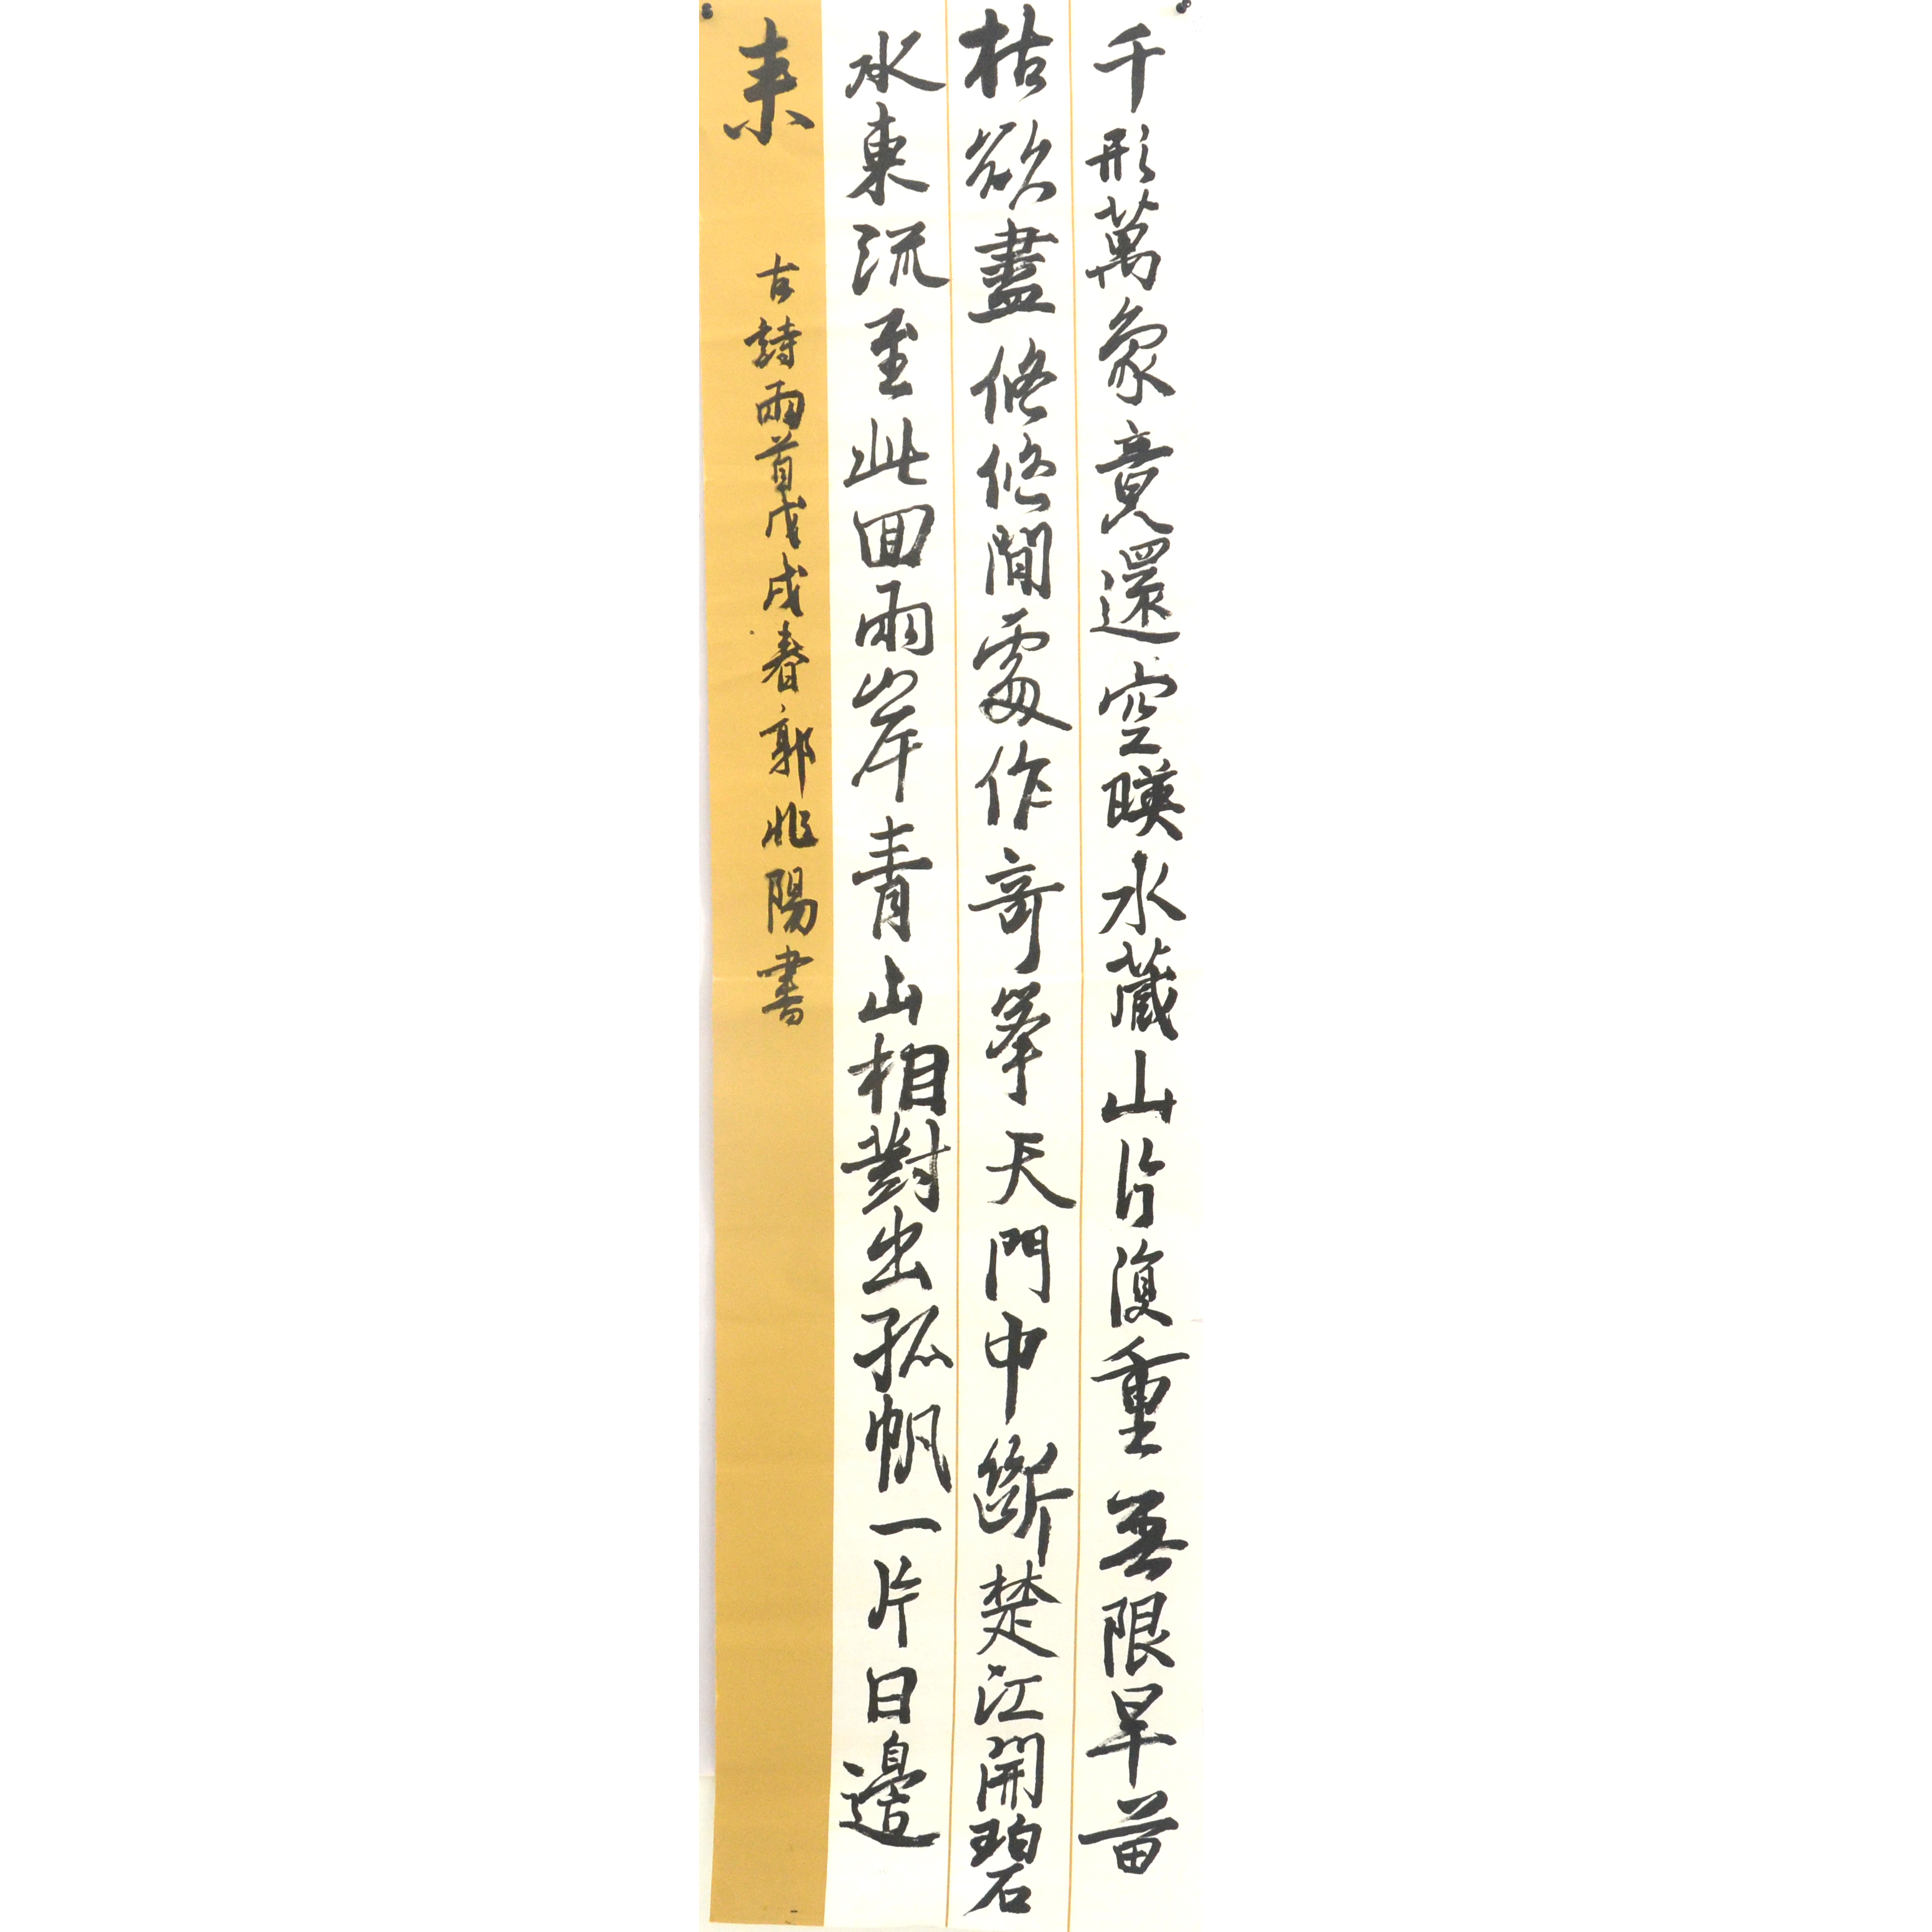 千形萬象竟還空暎水藏山片復重無限旱苗
枯欲盡悠悠閒處作奇峯天門中斷楚江開碧
水東流至此回兩岸青山相對出孤帆一片日邊
来
古詩兩首戊戌春郭兆陽書